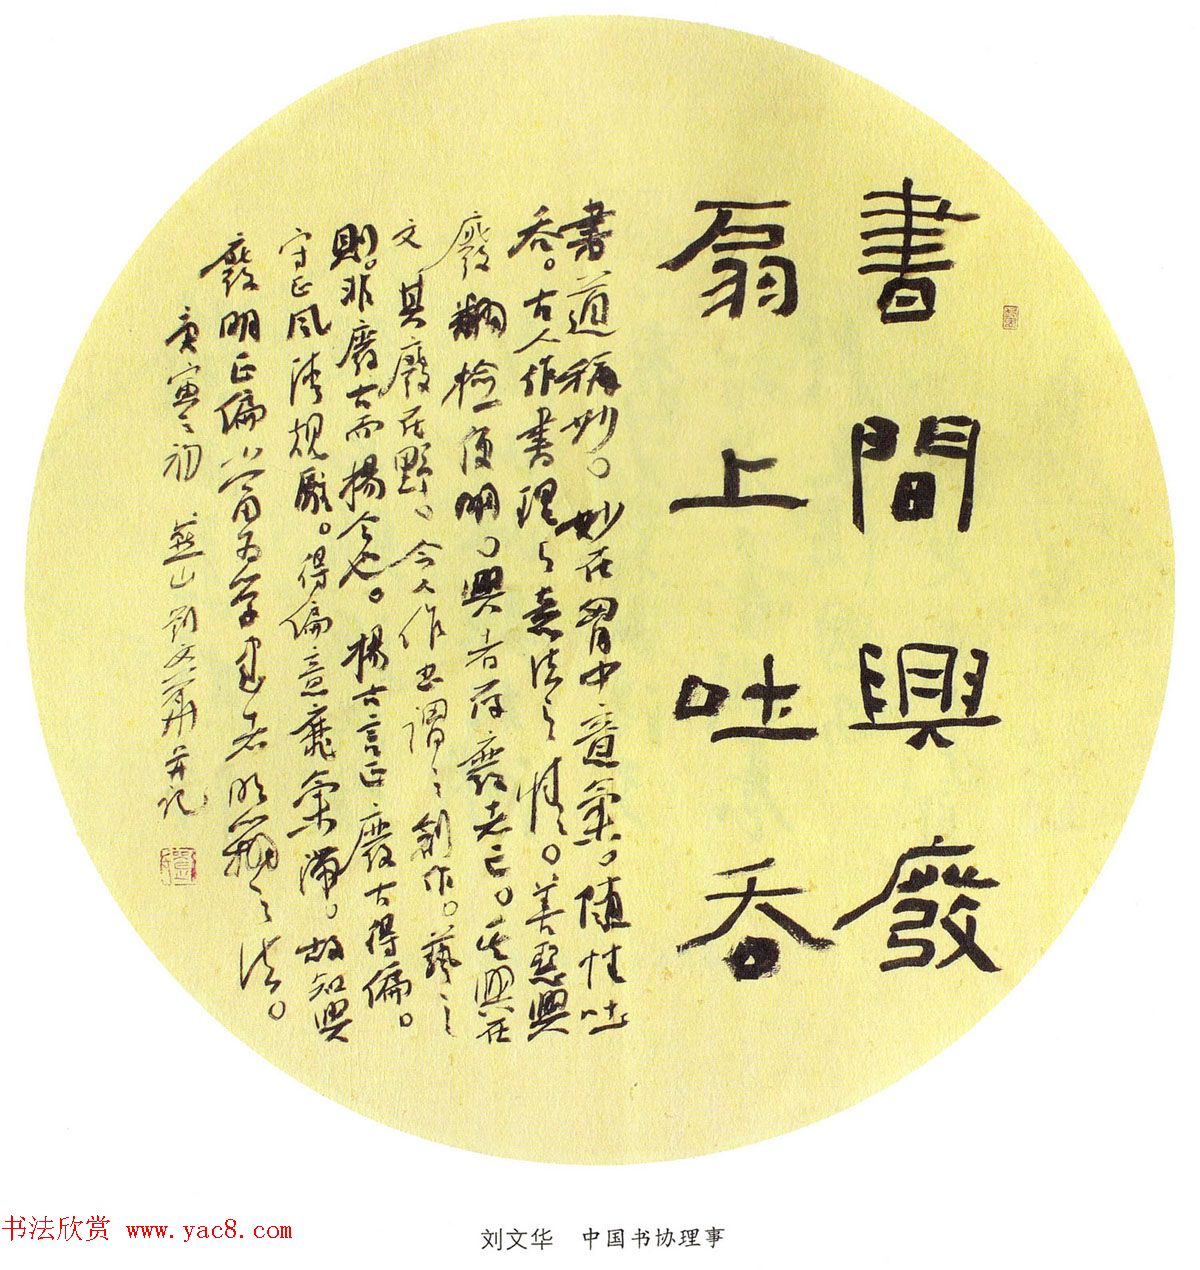 書間興廢
扇上吐吞
書道稱妙。妙在胃中意氣。随性吐
吞。古人作書理之意法之情。善惡興
廢翻檢便明。興者存廢者亡。其興在
文其廢在野。今人作書謂之創作。藝之
則。非廢古而揚今也。揚古言正廢古得偏。
守正風清規嚴。得偏意靡氣滞。故知興
廢明正偏當为学書者明之法。
庚寅之初 燕山刘文華并记
书法欣赏 www.yac8.com
刘文华 中国书协理事